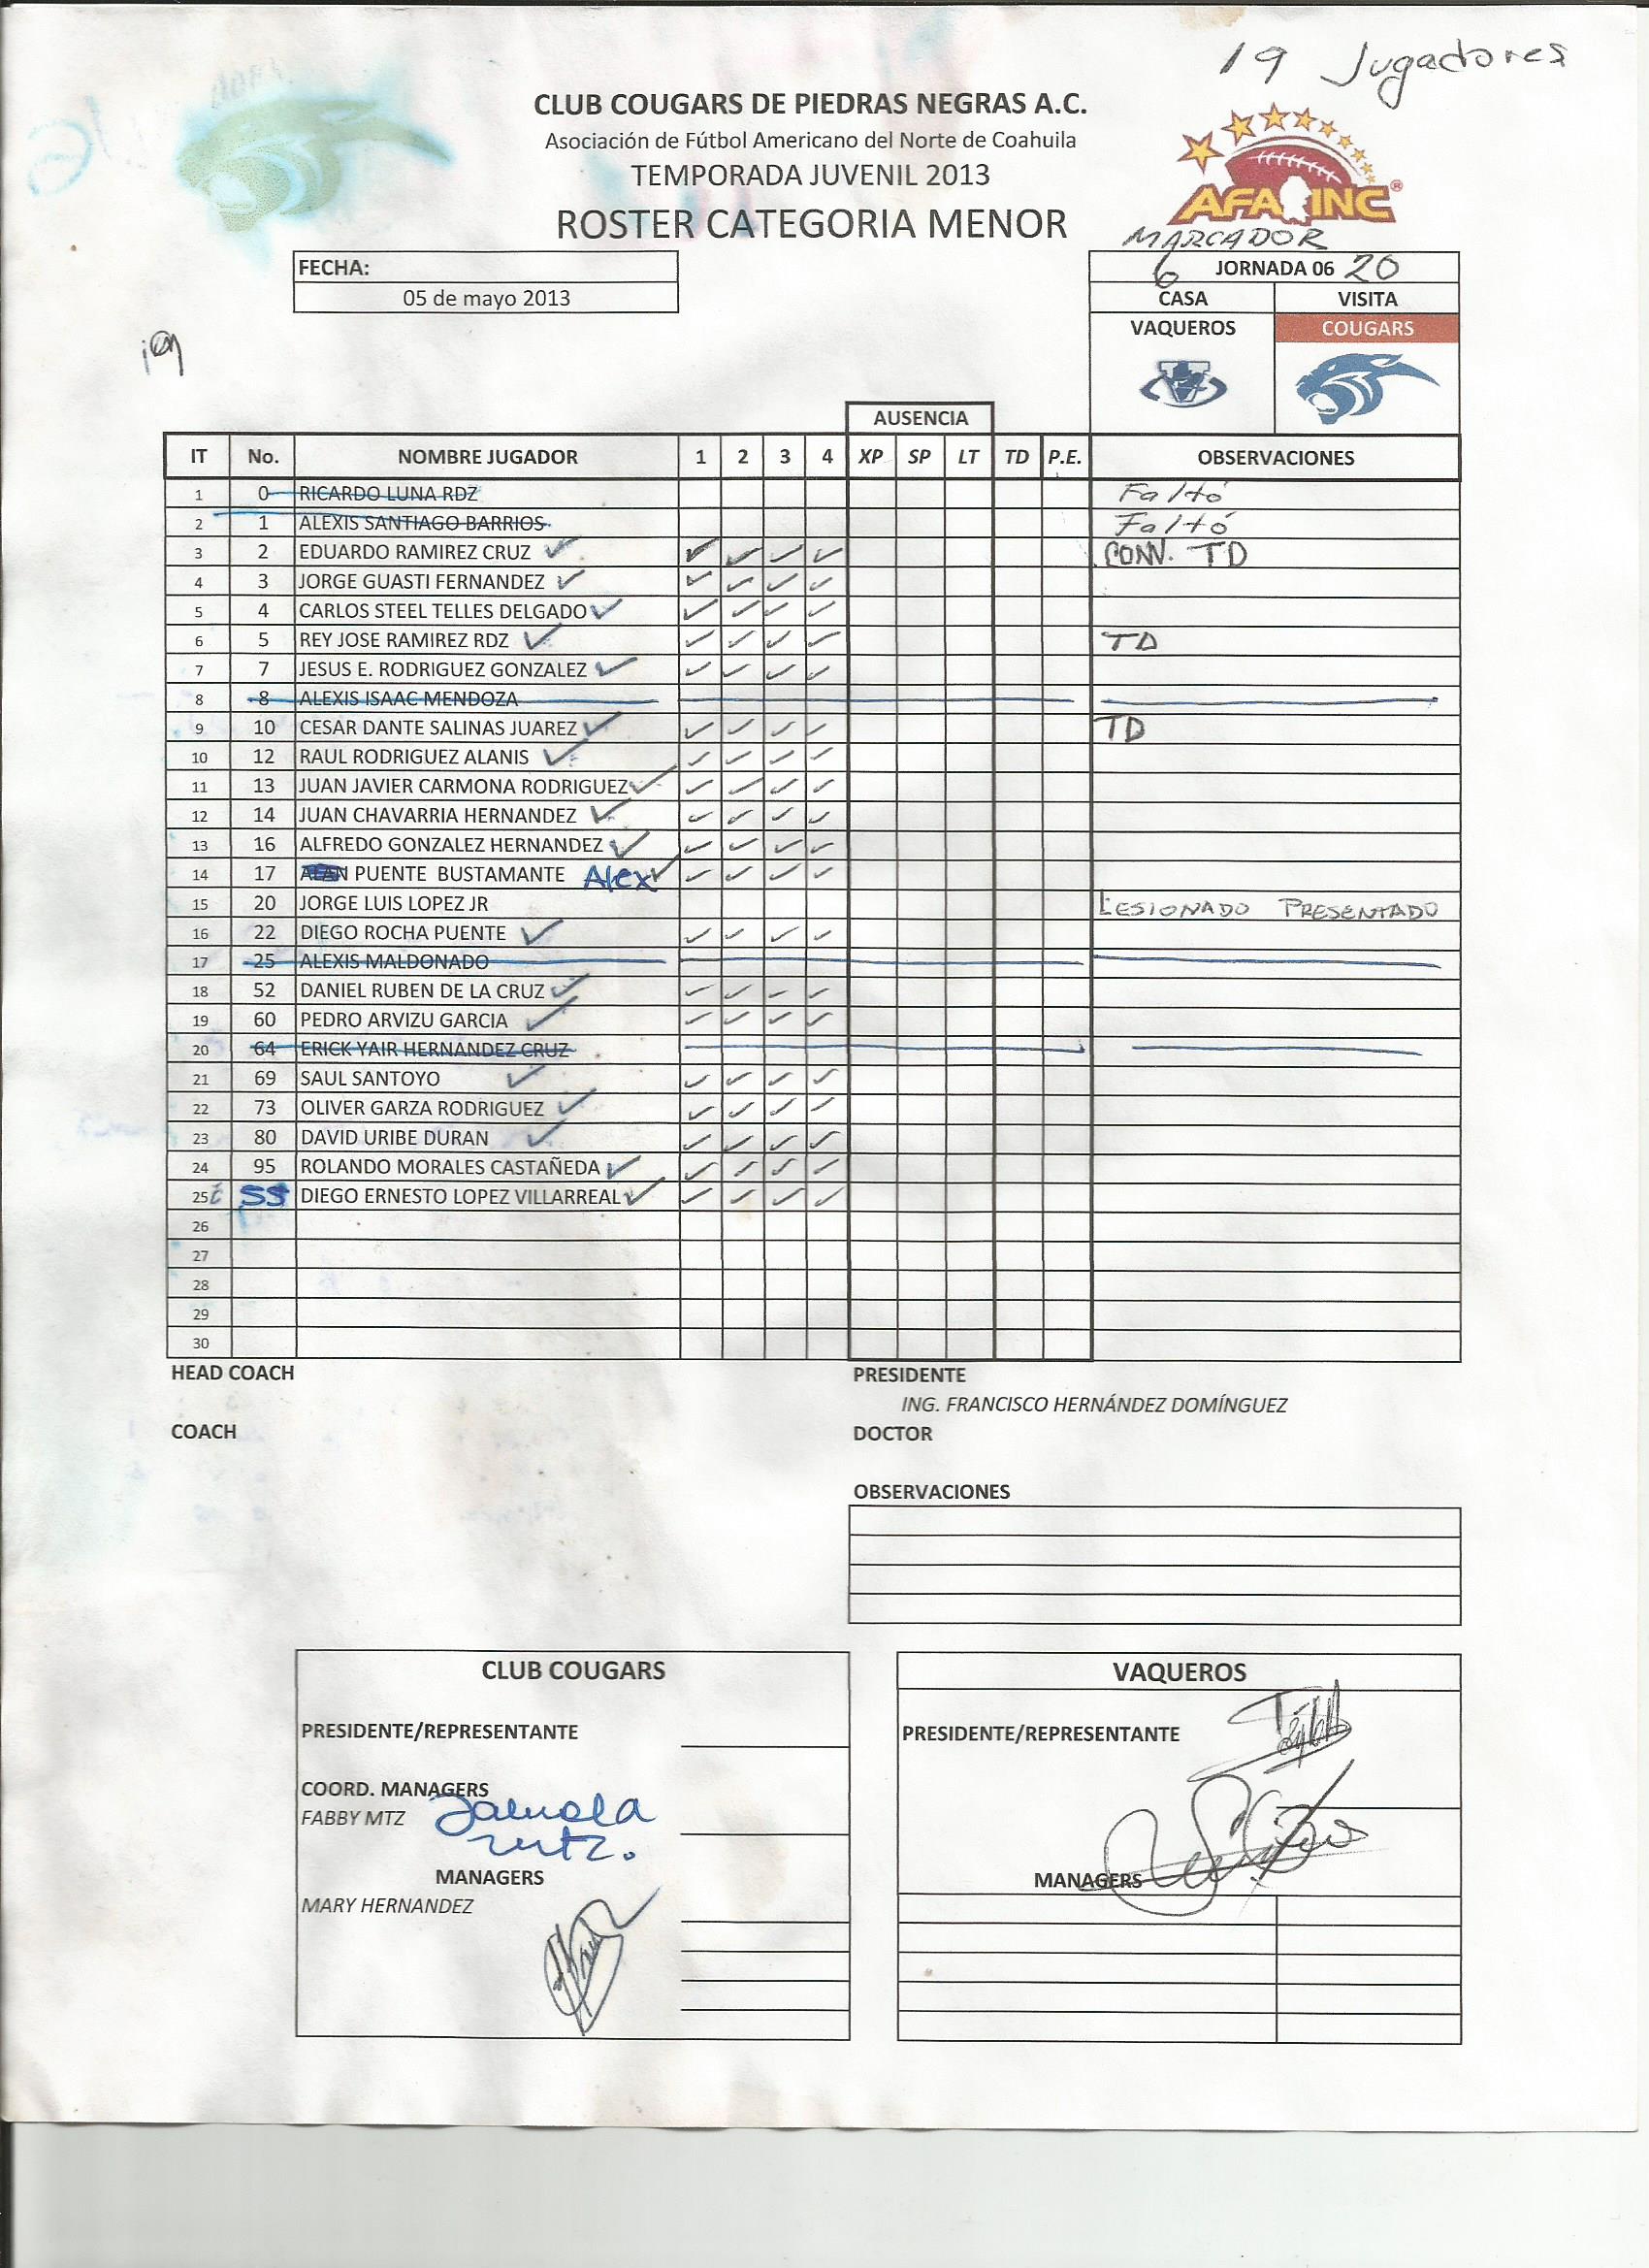 19 Jugadores
CLUB COUGARS DE PIEDRAS NEGRAS A.C.
Asociación de Fútbol Americano del Norte de Coahuila
TEMPORADA JUVENIL 2013
ROSTER CATEGORIA MENOR
AFA INC®
MARCADOR
FECHA:
05 de mayo 2013
6 JORNADA 06 20
CASA VISITA
VAQUEROS COUGARS
AUSENCIA
IT No. NOMBRE JUGADOR 1 2 3 4 XP SP LT TD P.E. OBSERVACIONES
1 0 RICARDO LUNA RDZ Faltó
2 1 ALEXIS SANTIAGO BARRIOS Faltó
3 2 EDUARDO RAMIREZ CRUZ ✓ ✓ ✓ ✓ ✓ CONV. TD
4 3 JORGE GUASTI FERNANDEZ ✓ ✓ ✓ ✓ ✓
5 4 CARLOS STEEL TELLES DELGADO ✓ ✓ ✓ ✓ ✓
6 5 REY JOSE RAMIREZ RDZ ✓ ✓ ✓ ✓ ✓ TD
7 7 JESUS E. RODRIGUEZ GONZALEZ ✓ ✓ ✓ ✓ ✓
8 8 ALEXIS ISAAC MENDOZA
9 10 CESAR DANTE SALINAS JUAREZ ✓ ✓ ✓ ✓ ✓ TD
10 12 RAUL RODRIGUEZ ALANIS ✓ ✓ ✓ ✓ ✓
11 13 JUAN JAVIER CARMONA RODRIGUEZ ✓ ✓ ✓ ✓ ✓
12 14 JUAN CHAVARRIA HERNANDEZ ✓ ✓ ✓ ✓ ✓
13 16 ALFREDO GONZALEZ HERNANDEZ ✓ ✓ ✓ ✓ ✓
14 17 ALAN PUENTE BUSTAMANTE Alex ✓ ✓ ✓ ✓ ✓
15 20 JORGE LUIS LOPEZ JR LESIONADO PRESENTADO
16 22 DIEGO ROCHA PUENTE ✓ ✓ ✓ ✓ ✓
17 25 ALEXIS MALDONADO
18 52 DANIEL RUBEN DE LA CRUZ ✓ ✓ ✓ ✓ ✓
19 60 PEDRO ARVIZU GARCIA ✓ ✓ ✓ ✓ ✓
20 64 ERICK YAIR HERNANDEZ CRUZ
21 69 SAUL SANTOYO ✓ ✓ ✓ ✓ ✓
22 73 OLIVER GARZA RODRIGUEZ ✓ ✓ ✓ ✓ ✓
23 80 DAVID URIBE DURAN ✓ ✓ ✓ ✓ ✓
24 95 ROLANDO MORALES CASTAÑEDA ✓ ✓ ✓ ✓ ✓
25 55 DIEGO ERNESTO LOPEZ VILLARREAL ✓ ✓ ✓ ✓ ✓
26
27
28
29
30
HEAD COACH PRESIDENTE
ING. FRANCISCO HERNÁNDEZ DOMÍNGUEZ
COACH DOCTOR
OBSERVACIONES
CLUB COUGARS
PRESIDENTE/REPRESENTANTE
COORD. MANAGERS
FABBY MTZ
MANAGERS
MARY HERNANDEZ
VAQUEROS
PRESIDENTE/REPRESENTANTE
MANAGERS